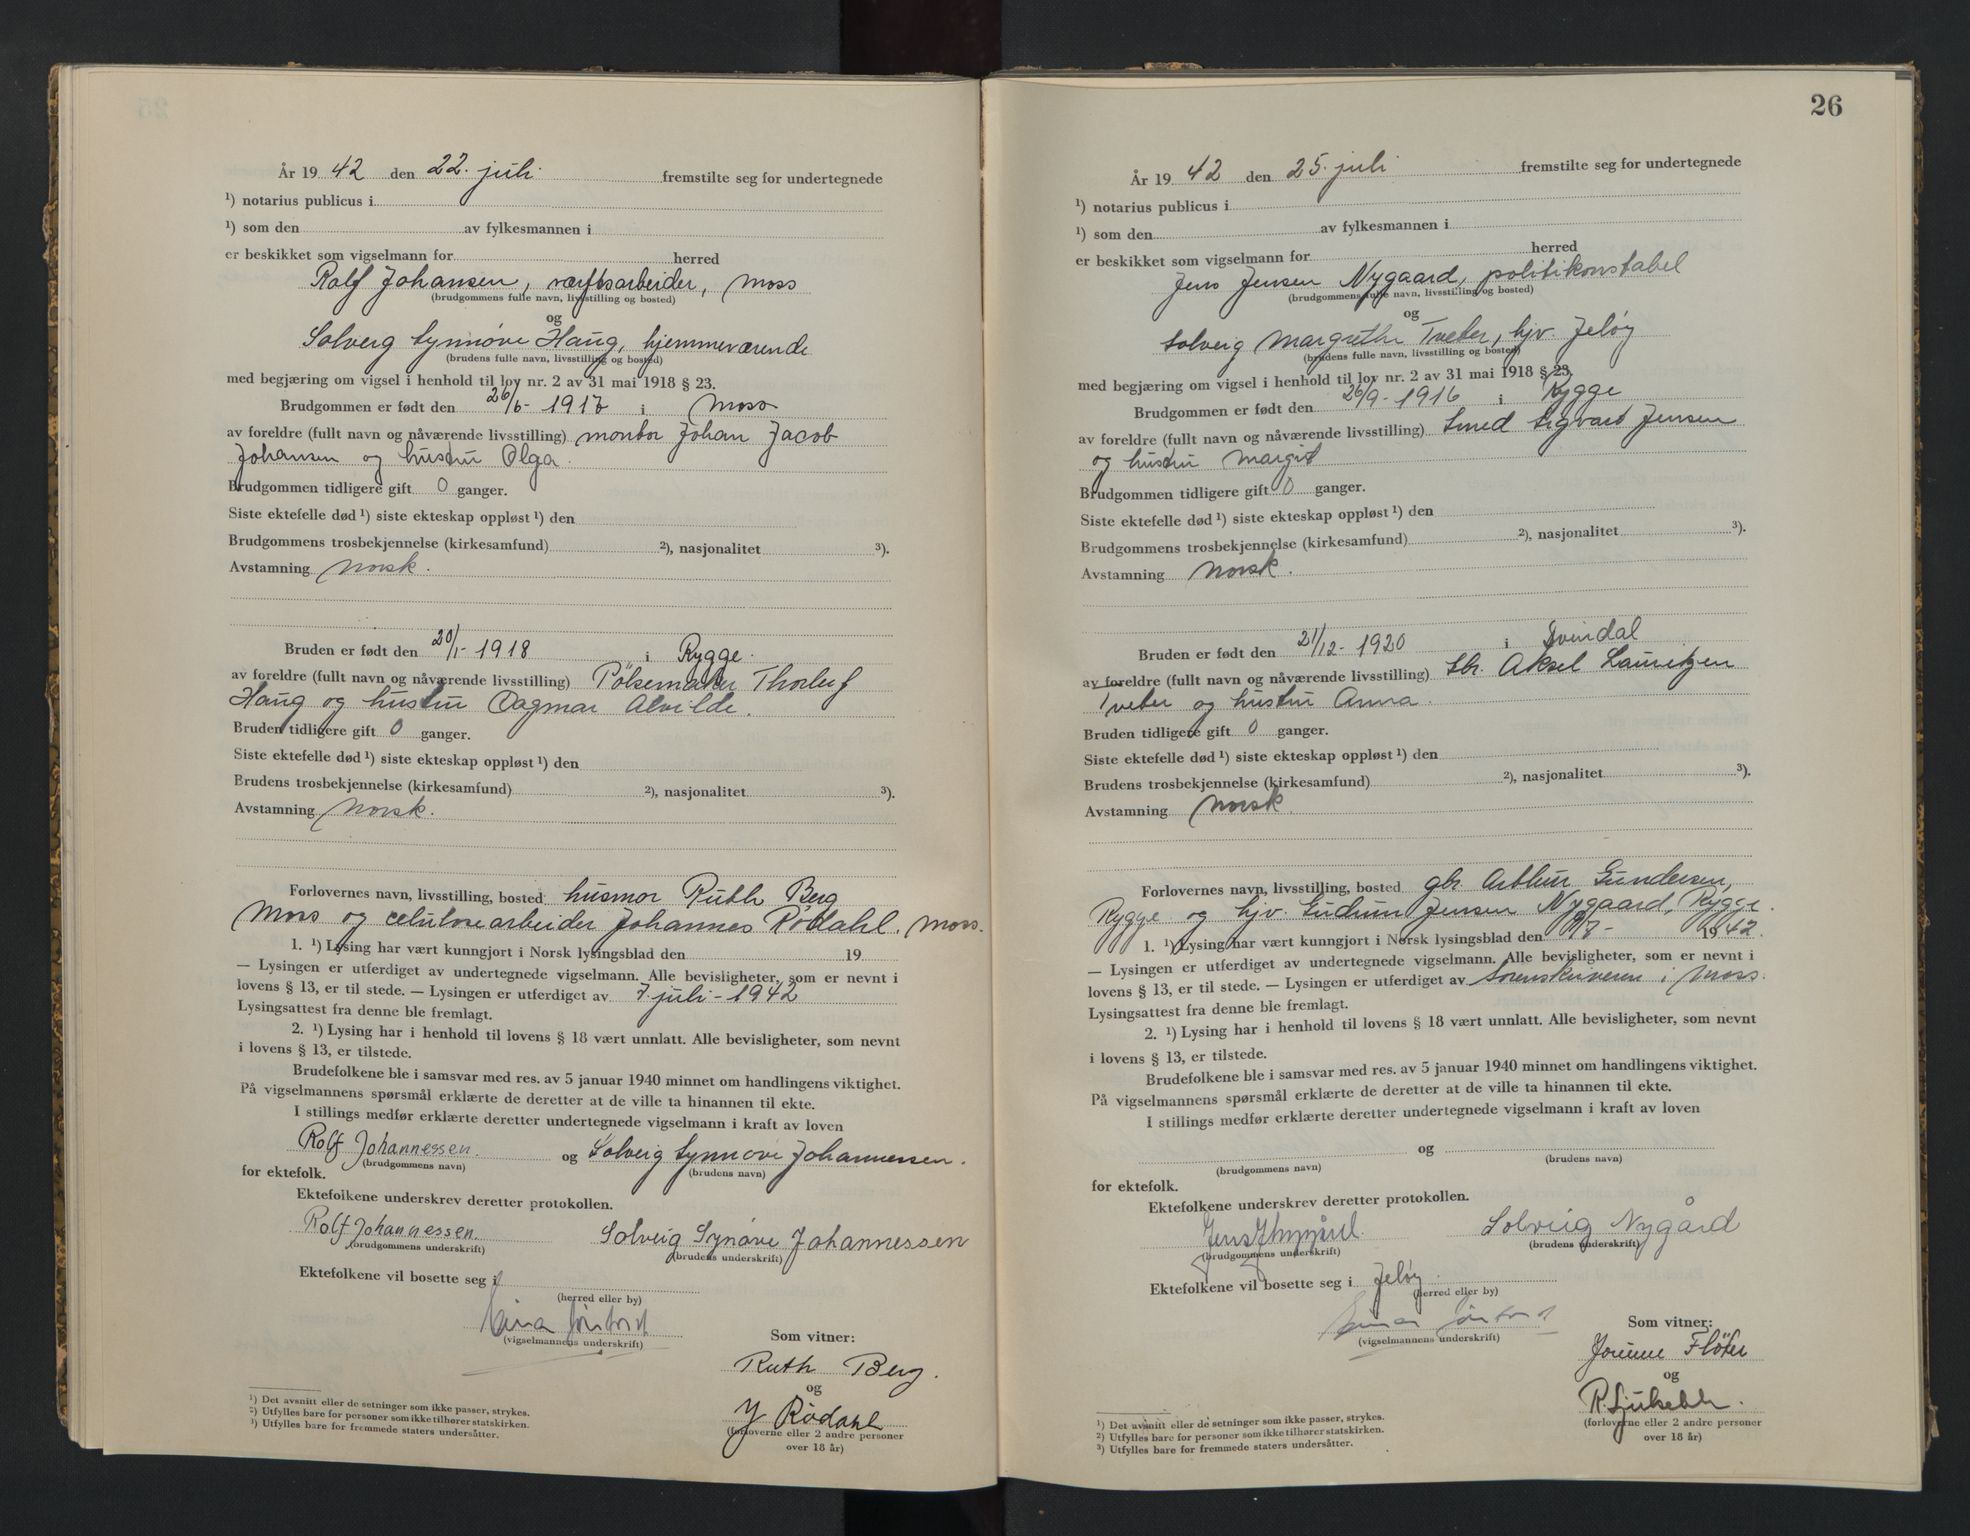 År 19 42 den 22. juli fremstilte seg for undertegnede
¹) notarius publicus i
¹) som den av fylkesmannen i
er beskikket som vigselmann for herred
Rolf Johansen, verftsarbeider, Moss
(brudgommens fulle navn, livsstilling og bosted)
og
Solveig Synnøve Haug, hjemmeværende
(brudens fulle navn, livsstilling og bosted)
med begjæring om vigsel i henhold til lov nr. 2 av 31 mai 1918 § 23.
Brudgommen er født den 26/6- i Moss
av foreldre (fullt navn og nåværende livsstilling) montør Johan Jacob
Johansen og hustru Olga.
Brudgommen tidligere gift 0 ganger.
Siste ektefelle død ¹) siste ekteskap oppløst ¹) den
Brudgommens trosbekjennelse (kirkesamfund) ²), nasjonalitet ³).
Avstamning Norsk.
Bruden er født den 20/1- 1918 i Rygge.
av foreldre (fullt navn og nåværende livsstilling) Pölsemaker Thorleif
Haug og hustru Dagmar Alvilde.
Bruden tidligere gift 0 ganger.
Siste ektefelle død ¹) siste ekteskap oppløst ¹) den
Brudens trosbekjennelse (kirkesamfund) ²), nasjonalitet ³).
Avstamning Norsk.
Forlovernes navn, livsstilling, bosted husmor Ruth Berg
Moss og celulosearbeider Johannes Rødahl. Moss.
1. ¹) Lysing har vært kunngjort i Norsk lysingsblad den 19
— Lysingen er utferdiget av undertegnede vigselmann. Alle bevisligheter, som er nevnt i
lovens § 13, er til stede. — Lysingen er utferdiget av 7. juli - 1942
Lysingsattest fra denne ble fremlagt.
2. ¹) Lysing har i henhold til lovens § 18 vært unnlatt. Alle bevisligheter, som nevnt
i lovens § 13, er tilstede.
Brudefolkene ble i samsvar med res. av 5 januar 1940 minnet om handlingens viktighet.
På vigselmannens spørsmål erklærte de deretter at de ville ta hinannen til ekte.
I stillings medfør erklærte deretter undertegnede vigselmann i kraft av loven
Rolf Johannessen. og Solveig Synnöve Johannessen.
(brudgommens navn) (brudens navn)
for ektefolk.
Ektefolkene underskrev deretter protokollen.
Rolf Johannessen. Solveig Synøve Johannessen
(brudgommens underskrift) (brudens underskrift)
Ektefolkene vil bosette seg i
(herred eller by)
(vigselmannens underskrift)
Som vitner:
Ruth Berg.
og
J Rödahl
(forloverne eller 2 andre personer
over 18 år)
¹) Det avsnitt eller de setninger som ikke passer, strykes.
²) Utfylles bare for personer som ikke tilhører statskirken.
³) Utfylles bare for fremmede staters undersåtter.
26
År 19 42 den 25. juli fremstilte seg for undertegnede
¹) notarius publicus i
¹) som den av fylkesmannen i
er beskikket som vigselmann for herred
Jens Jensen Nygaard, politikonstabel
(brudgommens fulle navn, livsstilling og bosted)
og
Solveig Margrethe Tveter, hjv. Jeløy
(brudens fulle navn, livsstilling og bosted)
med begjæring om vigsel i henhold til lov nr. 2 av 31 mai 1918 § 23.
Brudgommen er født den 26/9- 1916 i Rygge
av foreldre (fullt navn og nåværende livsstilling) Smed Sigvard Jensen
og hustru Margit
Brudgommen tidligere gift 0 ganger.
Siste ektefelle død ¹) siste ekteskap oppløst ¹) den
Brudgommens trosbekjennelse (kirkesamfund) ²), nasjonalitet ³).
Avstamning Norsk.
Bruden er født den 21/12- 1920 i Svindal
av foreldre (fullt navn og nåværende livsstilling) Aksel Lauritzen
Tveter og hustru Anna.
Bruden tidligere gift 0 ganger.
Siste ektefelle død ¹) siste ekteskap oppløst ¹) den
Brudens trosbekjennelse (kirkesamfund) ²), nasjonalitet ³).
Avstamning Norsk.
Forlovernes navn, livsstilling, bosted gbr. Arthur Gundersen,
Rygge og hjv. Gudrun Jensen Nygaard, Rygge.
1. ¹) Lysing har vært kunngjort i Norsk lysingsblad den 1942.
— Lysingen er utferdiget av undertegnede vigselmann. Alle bevisligheter, som er nevnt i
lovens § 13, er til stede. — Lysingen er utferdiget av Sorenskriveren i Moss.
Lysingsattest fra denne ble fremlagt.
2. ¹) Lysing har i henhold til lovens § 18 vært unnlatt. Alle bevisligheter, som nevnt
i lovens § 13, er tilstede.
Brudefolkene ble i samsvar med res. av 5 januar 1940 minnet om handlingens viktighet.
På vigselmannens spørsmål erklærte de deretter at de ville ta hinannen til ekte.
I stillings medfør erklærte deretter undertegnede vigselmann i kraft av loven
og
(brudgommens navn) (brudens navn)
for ektefolk.
Ektefolkene underskrev deretter protokollen.
Jens J Nygård. Solveig Nygård
(brudgommens underskrift) (brudens underskrift)
Ektefolkene vil bosette seg i Jeløy.
(herred eller by)
(vigselmannens underskrift)
Som vitner:
Flöter
og
(forloverne eller 2 andre personer
over 18 år)
¹) Det avsnitt eller de setninger som ikke passer, strykes.
²) Utfylles bare for personer som ikke tilhører statskirken.
³) Utfylles bare for fremmede staters undersåtter.